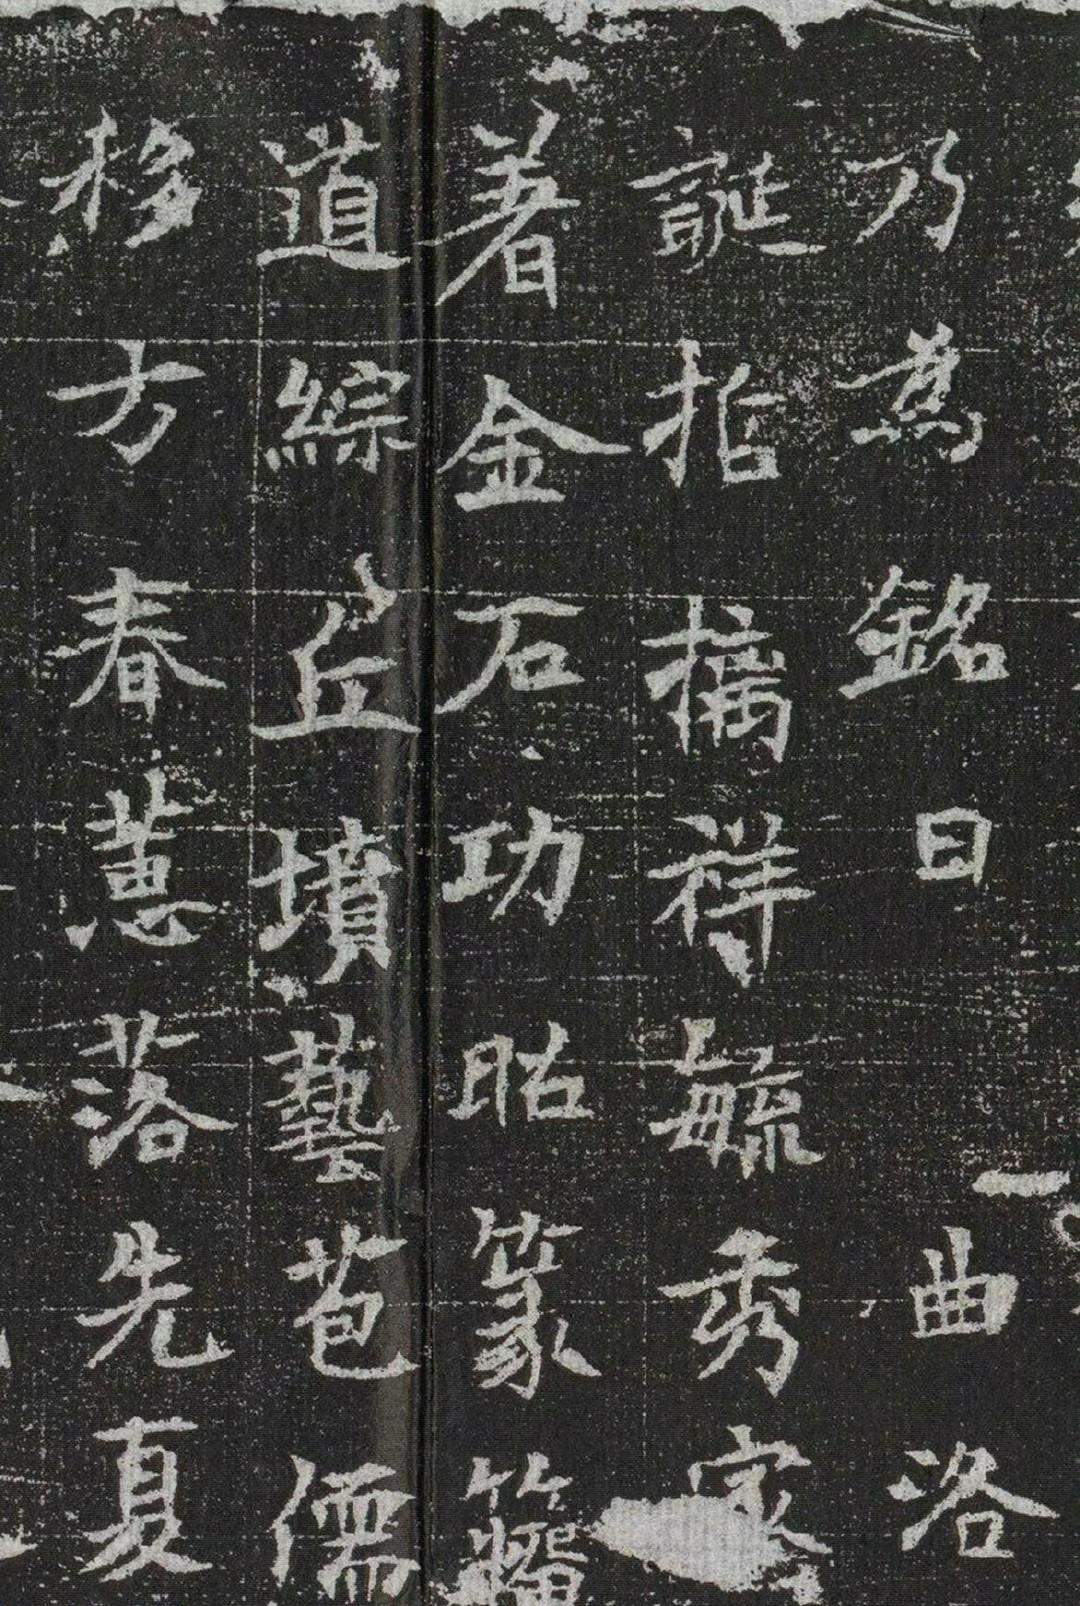 乃為銘曰曲洛
誕哲摛祥毓秀家
著金石功昭篆籀
道綜丘墳藝苞儒
移方春蕙落先夏